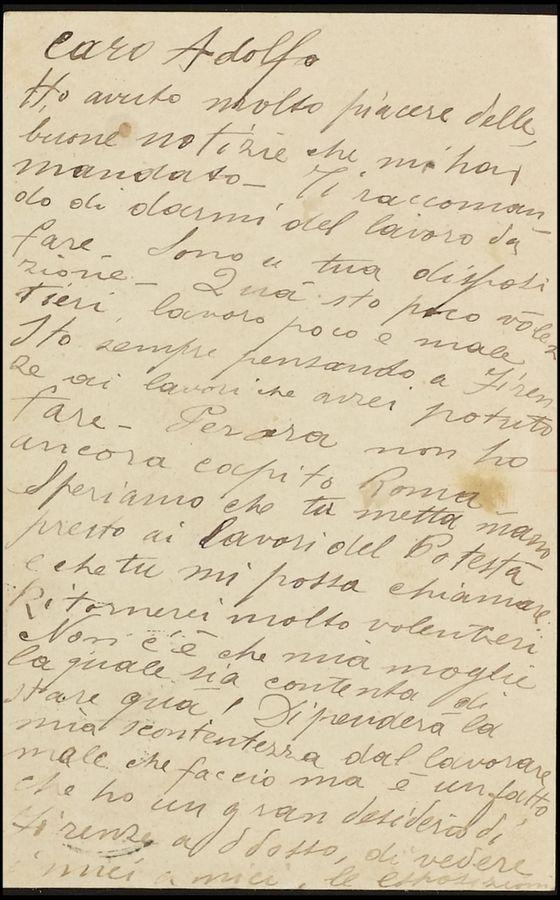 Caro Adolfo
Ho avuto molto piacere delle
buone notizie che mi hai
mandato – Ti raccoman
do di darmi del lavoro da
fare. Sono a tua disposi
zione – Quà sto poco volen
tieri, lavoro poco e male
Sto sempre pensando a Firen
ze ai lavori che avrei potuto
fare – Per ora non ho
ancora capito Roma
Speriamo che tu metta mano
presto ai lavori del Potestà
e che tu mi possa chiamare.
Ritornerei molto volentieri
Non c'è che mia moglie
la quale sia contenta di
stare quà! Dipenderà la
mia scontentezza dal lavorare
male che faccio ma è un fatto
che ho un gran desiderio di
Firenze addosso, di vedere
i miei amici, le esposizioni